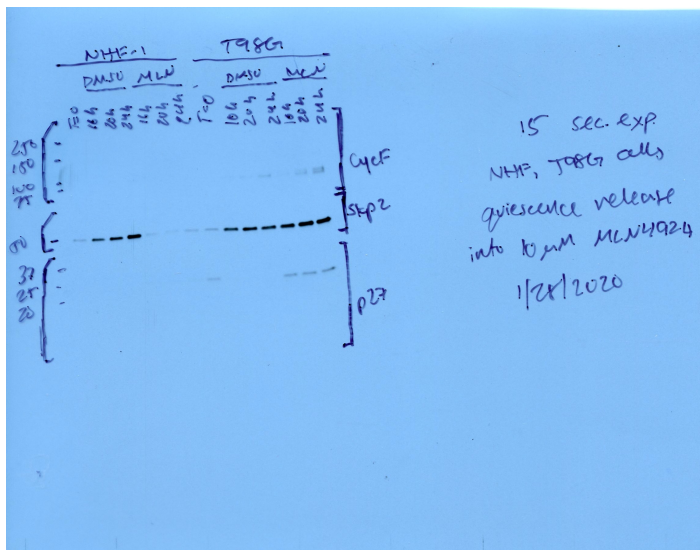 NHF-1 T98G
DMSO MLN DMSO MLN
T=0 16h 20h 24h 16h 20h 24h T=0 16h 20h 24h 16h 20h 24h
250
150
100
75
CycF
50
Skp2
37
25
20
p27
15 sec. exp.
NHF, T98G cells
quiescence release
into 10 µM MLN4924
1/28/2020